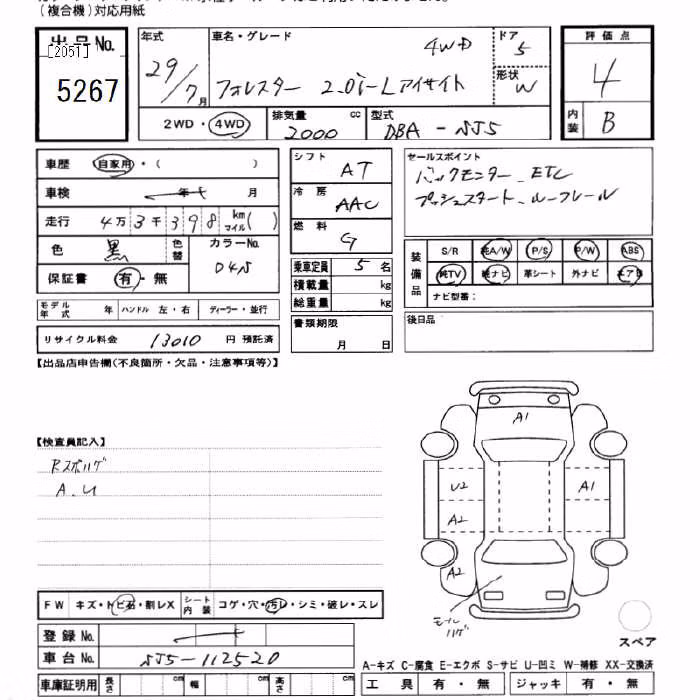 (複合機)対応用紙
出品No.
[2051]
5267
年式
29/7月
車名・グレード
フォレスター 2.0i-Lアイサイト
4WD
ドア
5
形状
W
評価点
4
内装
B
2WD・4WD
排気量
2000 cc
型式
DBA-SJ5
車歴 自家用・( )
車検 年 月
走行 4万3千398km マイル( )
色 黒 色替
カラーNo.
D4S
保証書 有・無
モデル年式 年 ハンドル 左・右 ディーラー・並行
リサイクル料金 13010 円 預託済
シフト
AT
冷房
AAC
燃料
G
乗車定員 5名
積載量 kg
総重量 kg
書類期限
月 日
セールスポイント
バックモニター、ETC
プッシュスタート、ルーフレール
装備品
S/R 純A/W P/S P/W ABS
純TV 純ナビ 革シート 外ナビ エアB
ナビ型番:
後日品
【出品店申告欄(不良箇所・欠品・注意事項等)】
【検査員記入】
A.U
A1
U2
A1
A2
A2
モール
ハゲ
スペア
FW キズ・トビ石・割レX シート内装 コゲ・穴・汚レ・シミ・破レ・スレ
登録No.
車台No. SJ5-112520
車庫証明用 長さ cm 幅 cm 高さ cm
A-キズ C-腐食 E-エクボ S-サビ U-凹ミ W-補修 XX-交換済
工具 有・無 ジャッキ 有・無